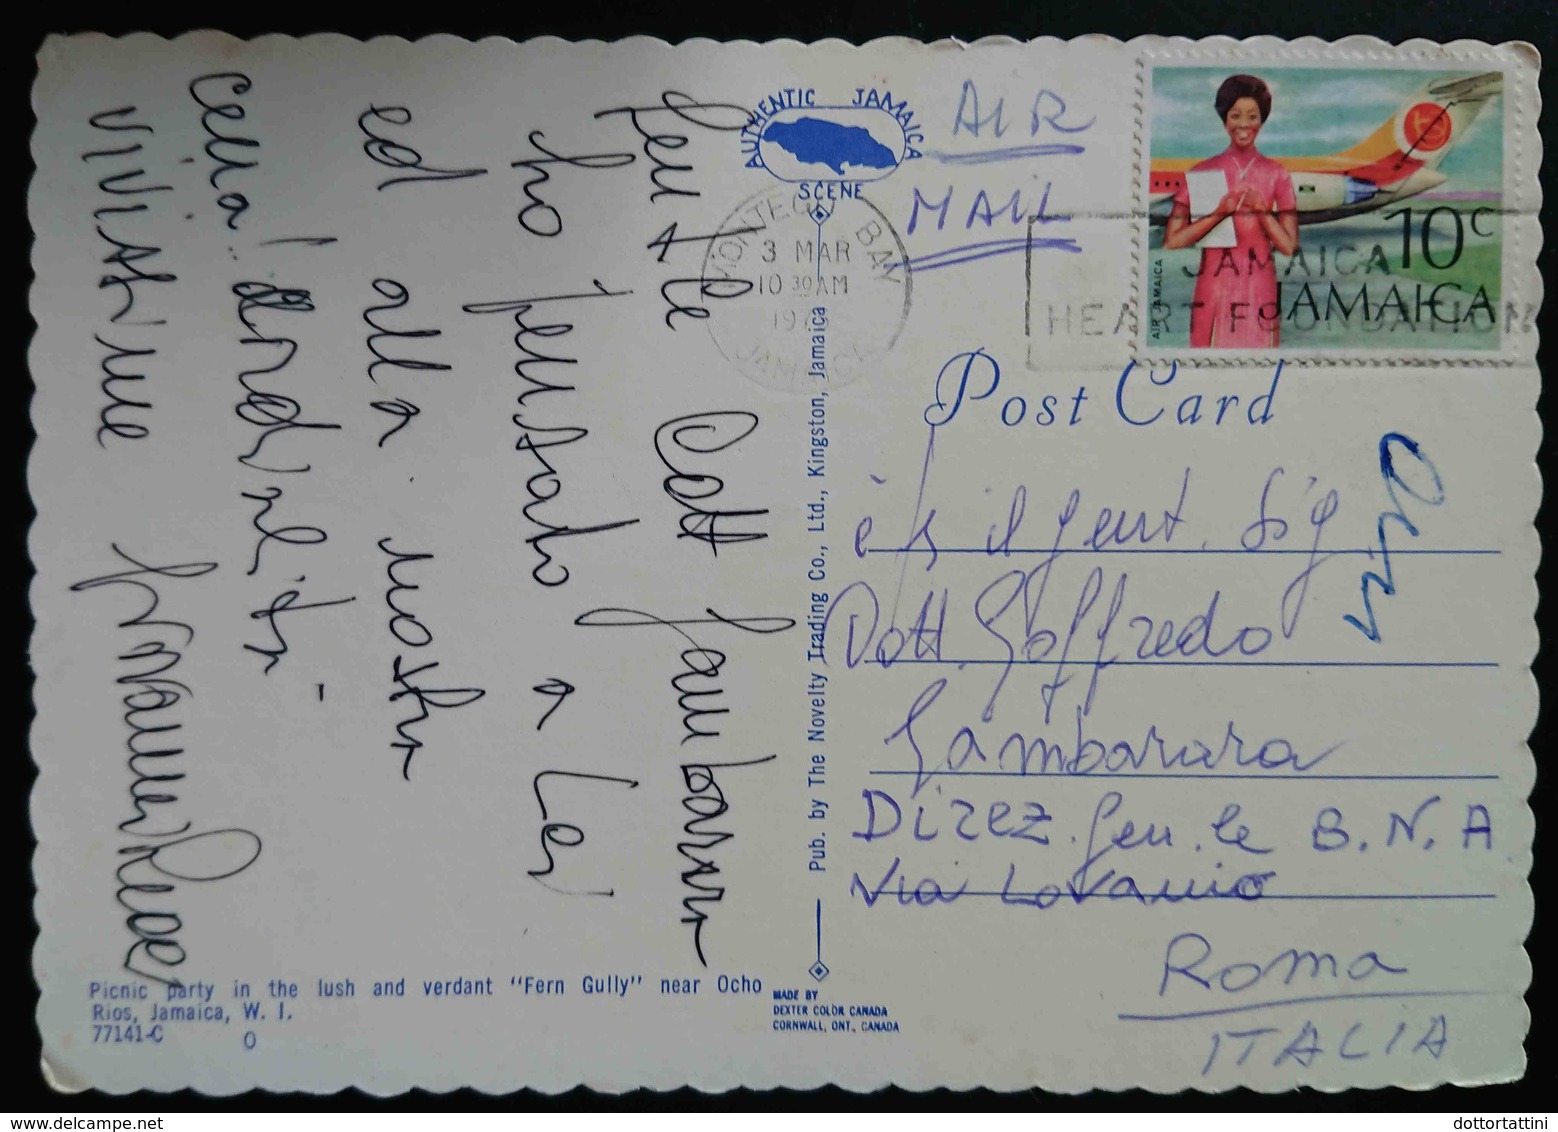 AUTHENTIC JAMAICA
SCENE
AIR
MAIL
MONTEGO BAY
3 MAR
10 30 AM
JAMAICA
JAMAICA
HEART FOUNDATION
10c
JAMAICA
AIR JAMAICA
Post Card
Gent.le Dott Gambarara
ho pensato a Lei
ed alla nostra
cena!
vivissime
il gent. Sig
Dott. Goffredo
Gambarara
Direz. Gen.le B.N.A
Via Lovanio
Roma
ITALIA
Pub. by The Novelty Trading Co., Ltd., Kingston, Jamaica
Picnic party in the lush and verdant "Fern Gully" near Ocho
Rios, Jamaica, W. I.
77141-C
O
MADE BY
DEXTER COLOR CANADA
CORNWALL, ONT., CANADA
dottortattini